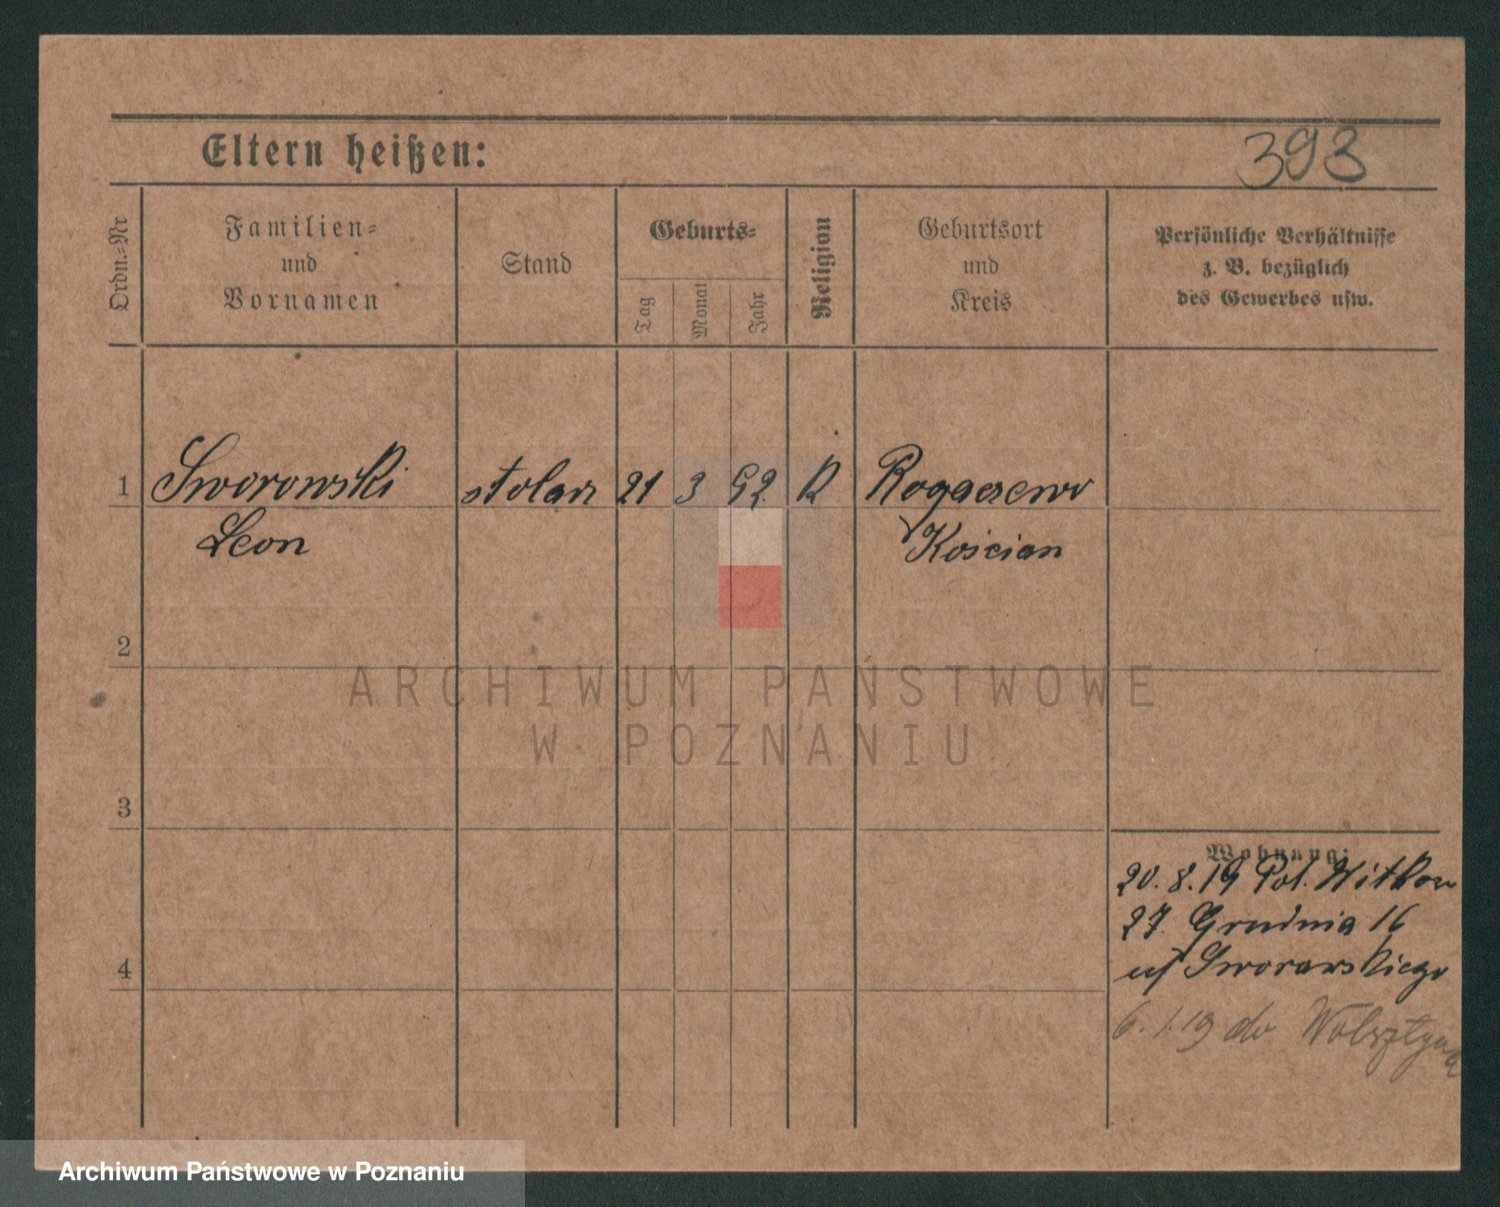 Eltern heißen:
393
Ordn.-Nr
Familien-
und
Vornamen
Stand
Geburts-
Tag
Monat
Jahr
Religion
Geburtsort
und
Kreis
Persönliche Verhältnisse
z. B. bezüglich
des Gewerbes usw.
1 Sworowski stolarz 21 3 92 R
Leon
Kościan
2
3
4
Wohnung:
20. 8. 19 Pol. Witkow
27 Grudnia 16
u/ Sworowskiego
6. 1. 19 do Wolsztyna
ARCHIWUM PAŃSTWOWE
W POZNANIU
Archiwum Państwowe w Poznaniu